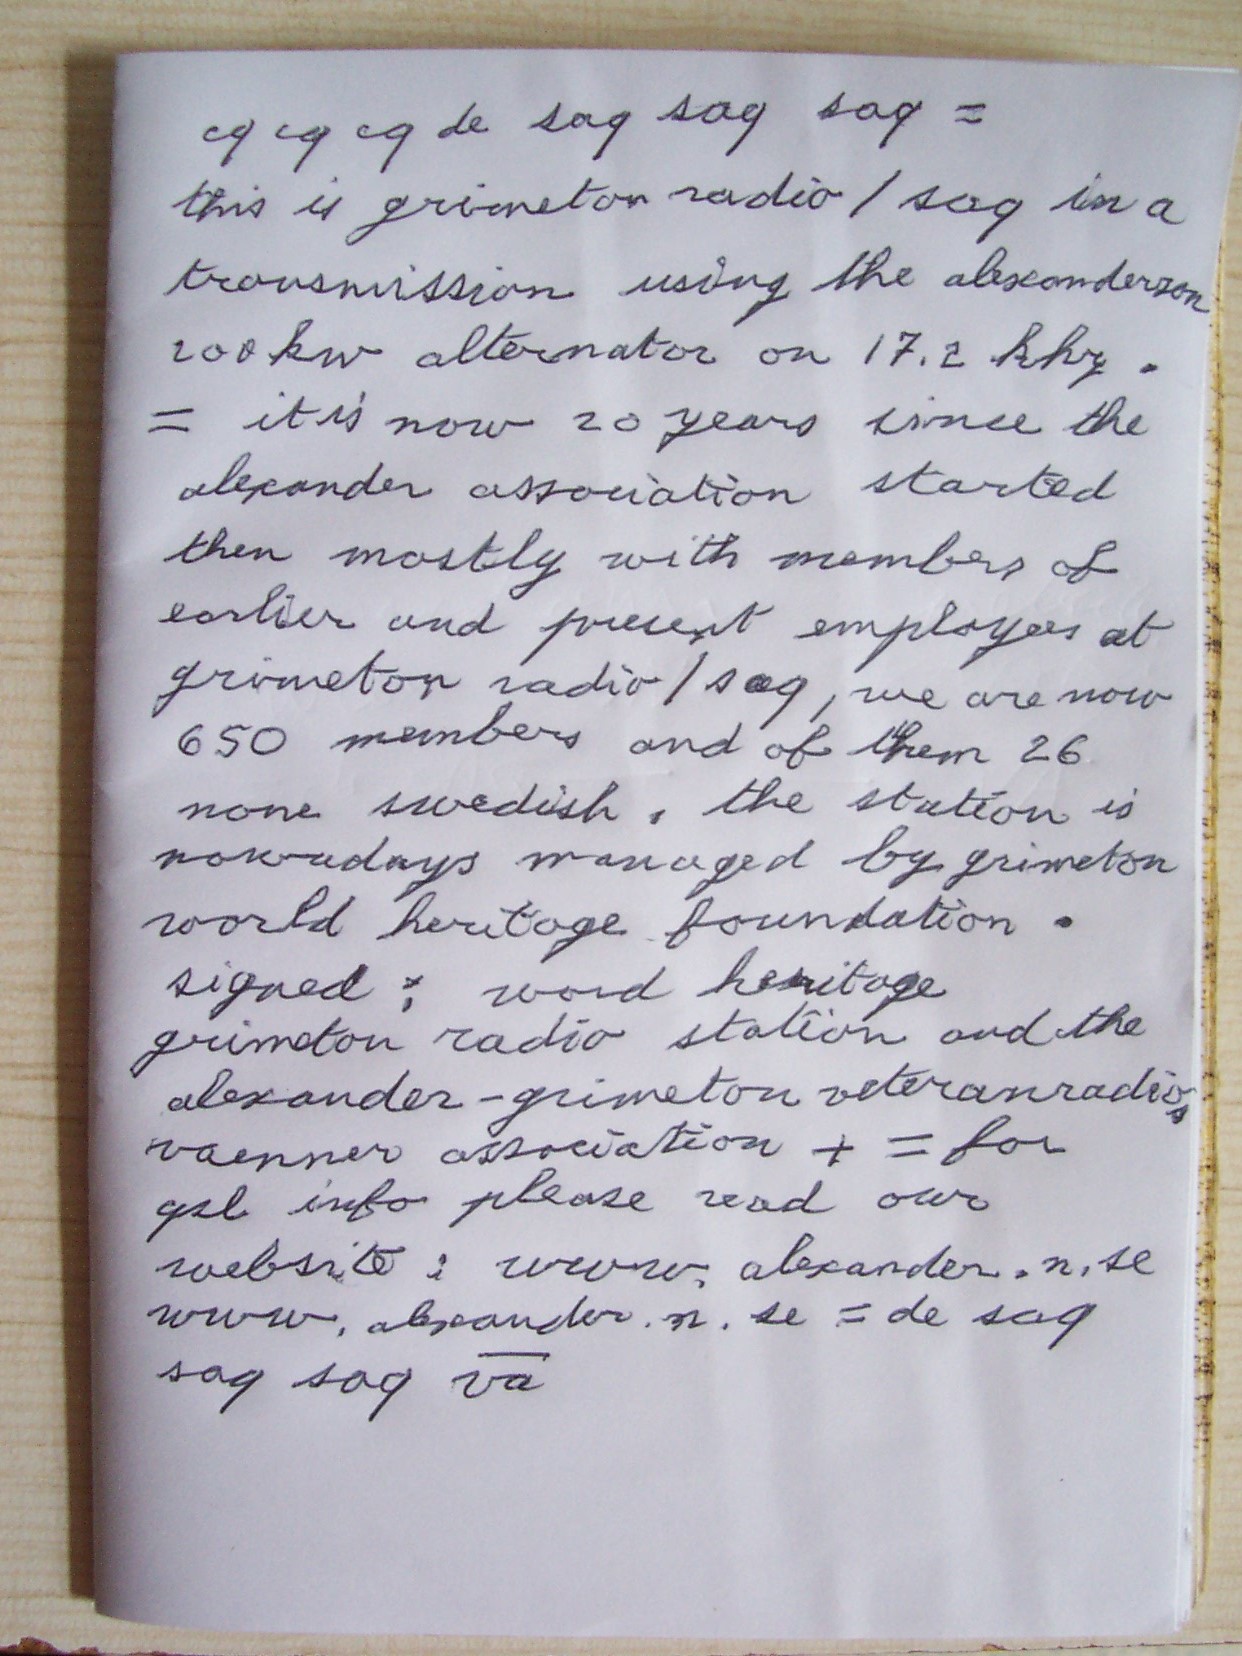 cq cq cq de saq saq saq =
this is grimeton radio / saq in a
transmission using the alexanderson
200 kw alternator on 17.2 khz .
= it is now 20 years since the
alexander association started
then mostly with members of
earlier and present employees at
grimeton radio / saq, we are now
650 members and of them 26
none swedish, the station is
nowadays managed by grimeton
world heritage foundation .
signed : word heritage
grimeton radio station and the
alexander - grimeton veteranradios
vaenner association + = for
qsl info please read our
website : www. alexander . n . se
www. alexander . n . se = de saq
saq saq v̅a̅